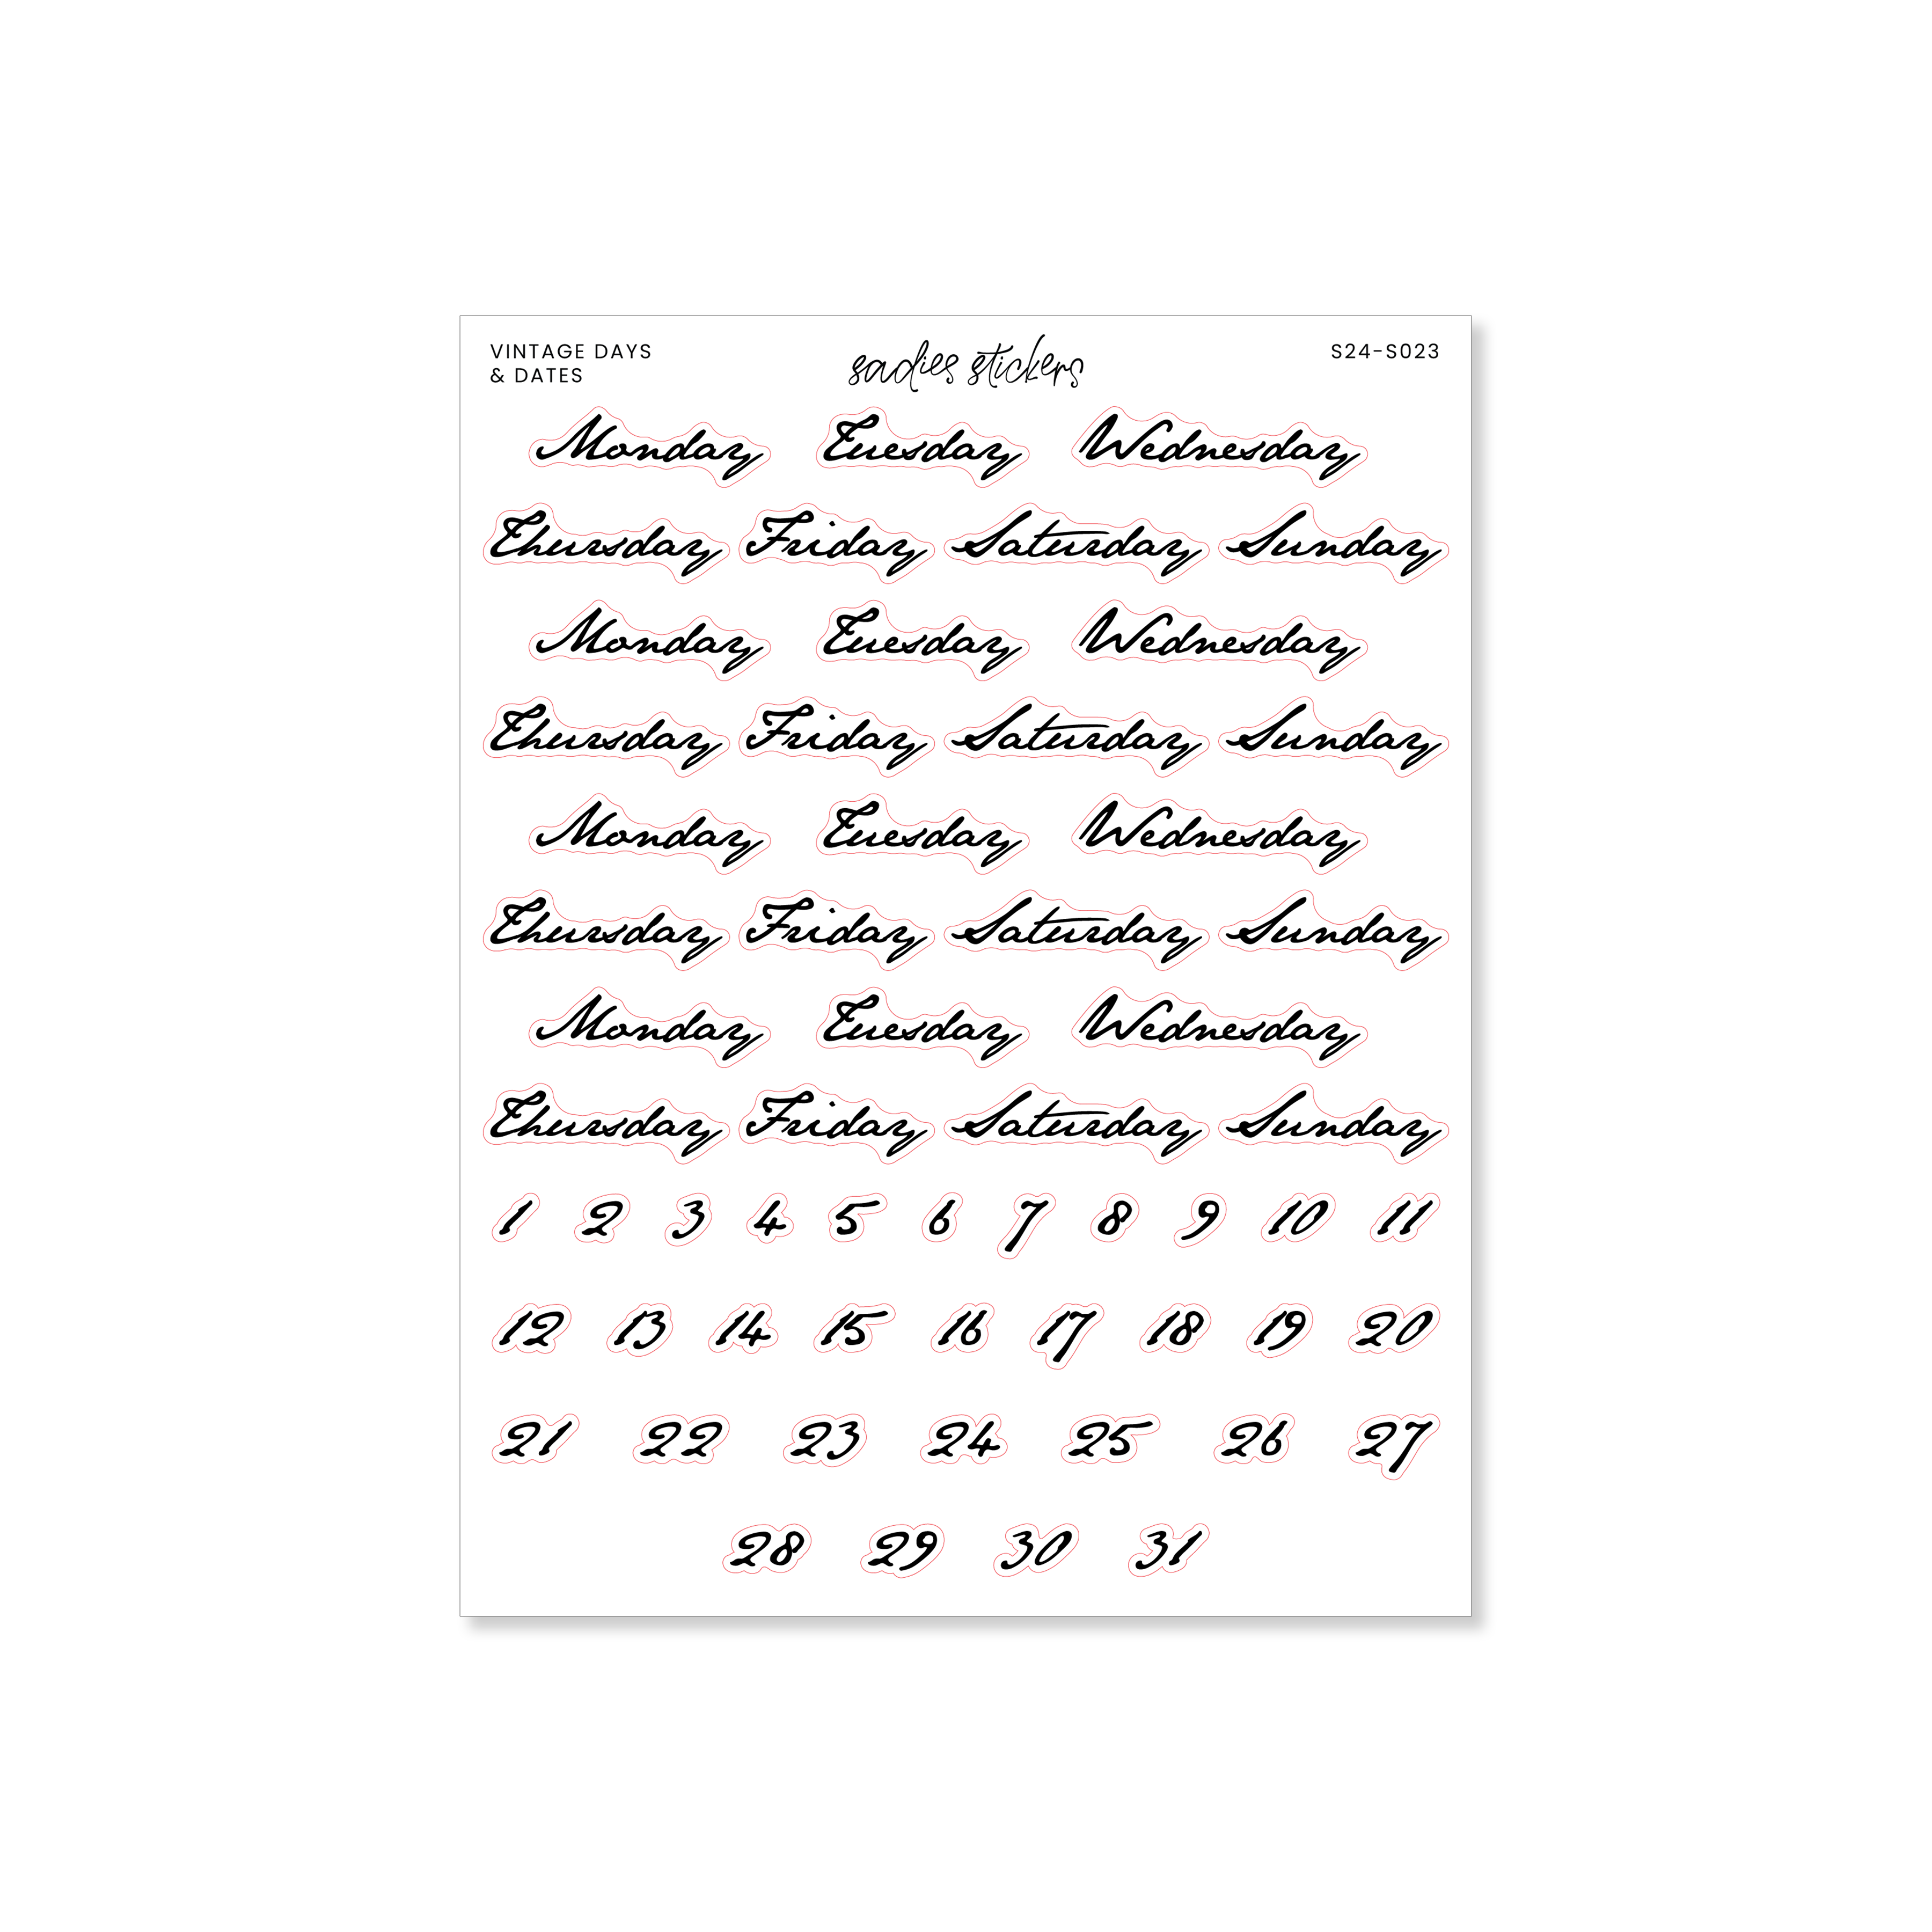 VINTAGE DAYS
& DATES
sadies stickers
S24-S023
Monday Tuesday Wednesday
Thursday Friday Saturday Sunday
Monday Tuesday Wednesday
Thursday Friday Saturday Sunday
Monday Tuesday Wednesday
Thursday Friday Saturday Sunday
Monday Tuesday Wednesday
Thursday Friday Saturday Sunday
1 2 3 4 5 6 7 8 9 10 11
12 13 14 15 16 17 18 19 20
21 22 23 24 25 26 27
28 29 30 31